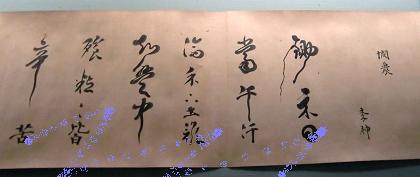 憫農
李紳
鋤禾日
當午汗
滴禾下土誰
知盤中
飧粒々皆
辛
苦